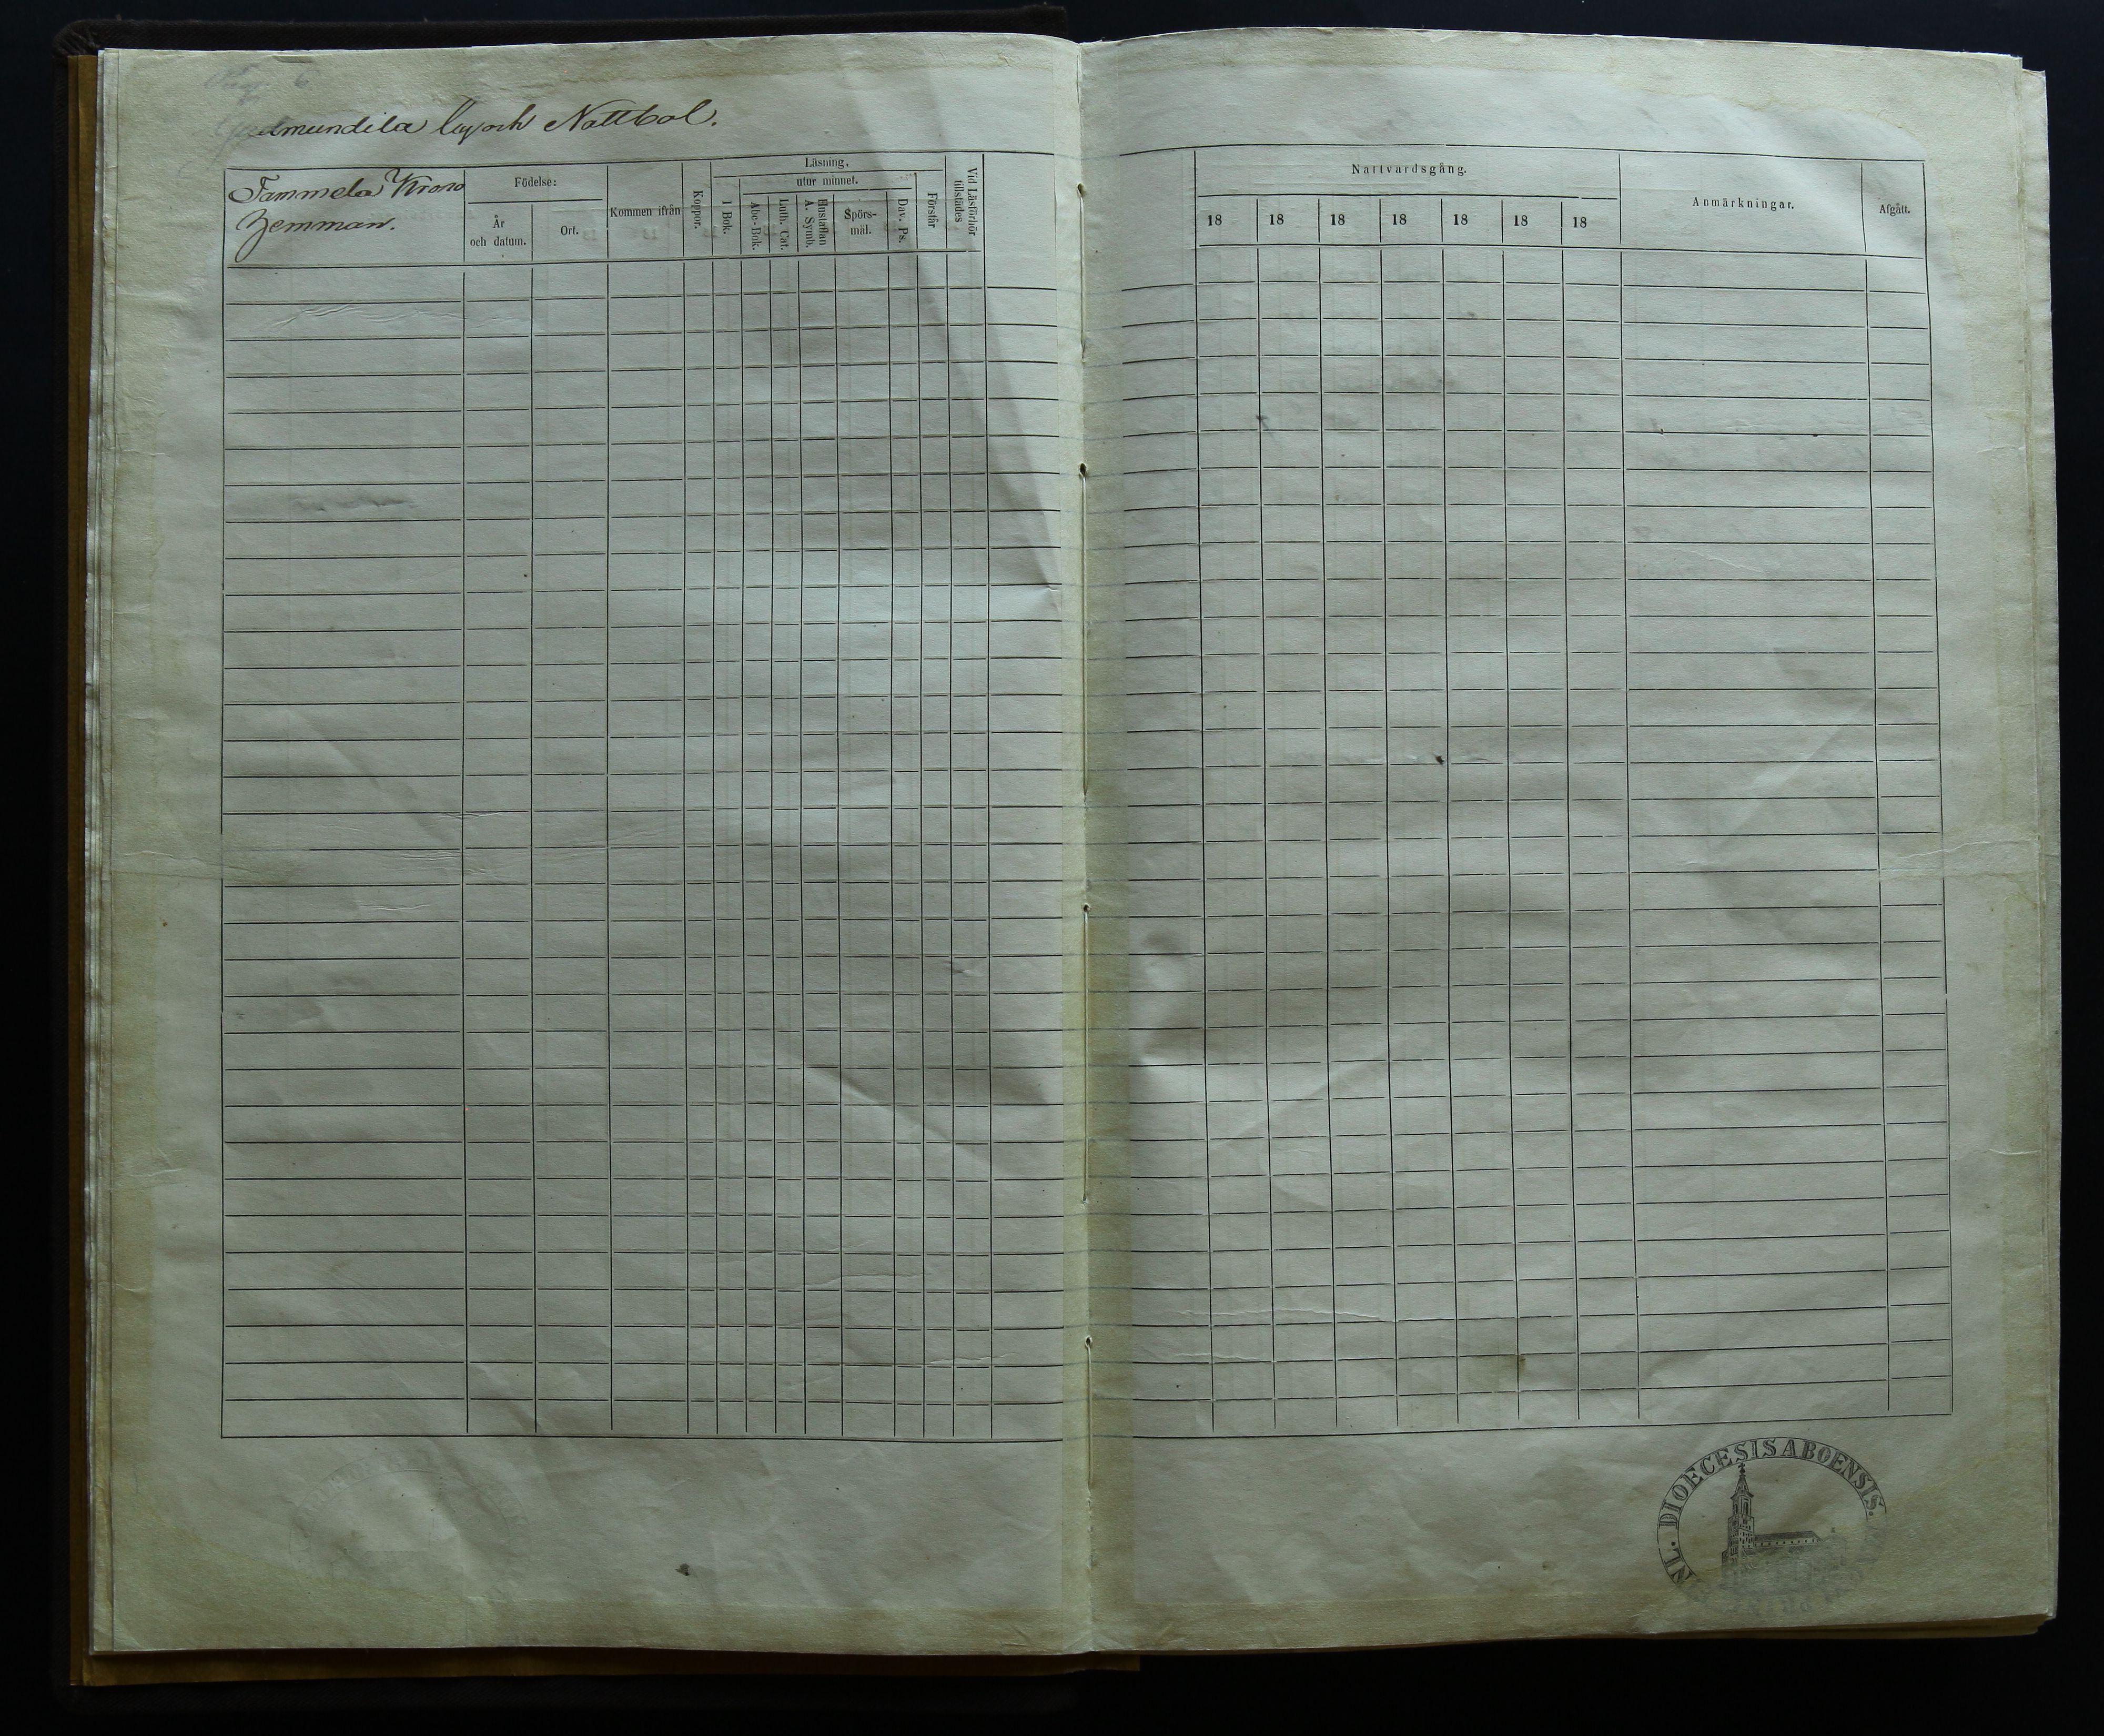 6
Gudmundila by och Nattbol.
Tammela Krono
Hemman.
Födelse:
År
och datum.
Ort.
Kommen ifrån
Koppor.
Läsning.
utur minnet.
I Bok.
Abc-Bok.
Luth. Cat.
Hustaflan
A. Symb.
Spörs-
mål.
Dav. Ps.
Förstår
Vid Läsförhör
tillstädes
Nattvardsgång.
18 18 18 18 18 18 18
Anmärkningar.
Afgått.
DIOECESIS ABOENSIS.